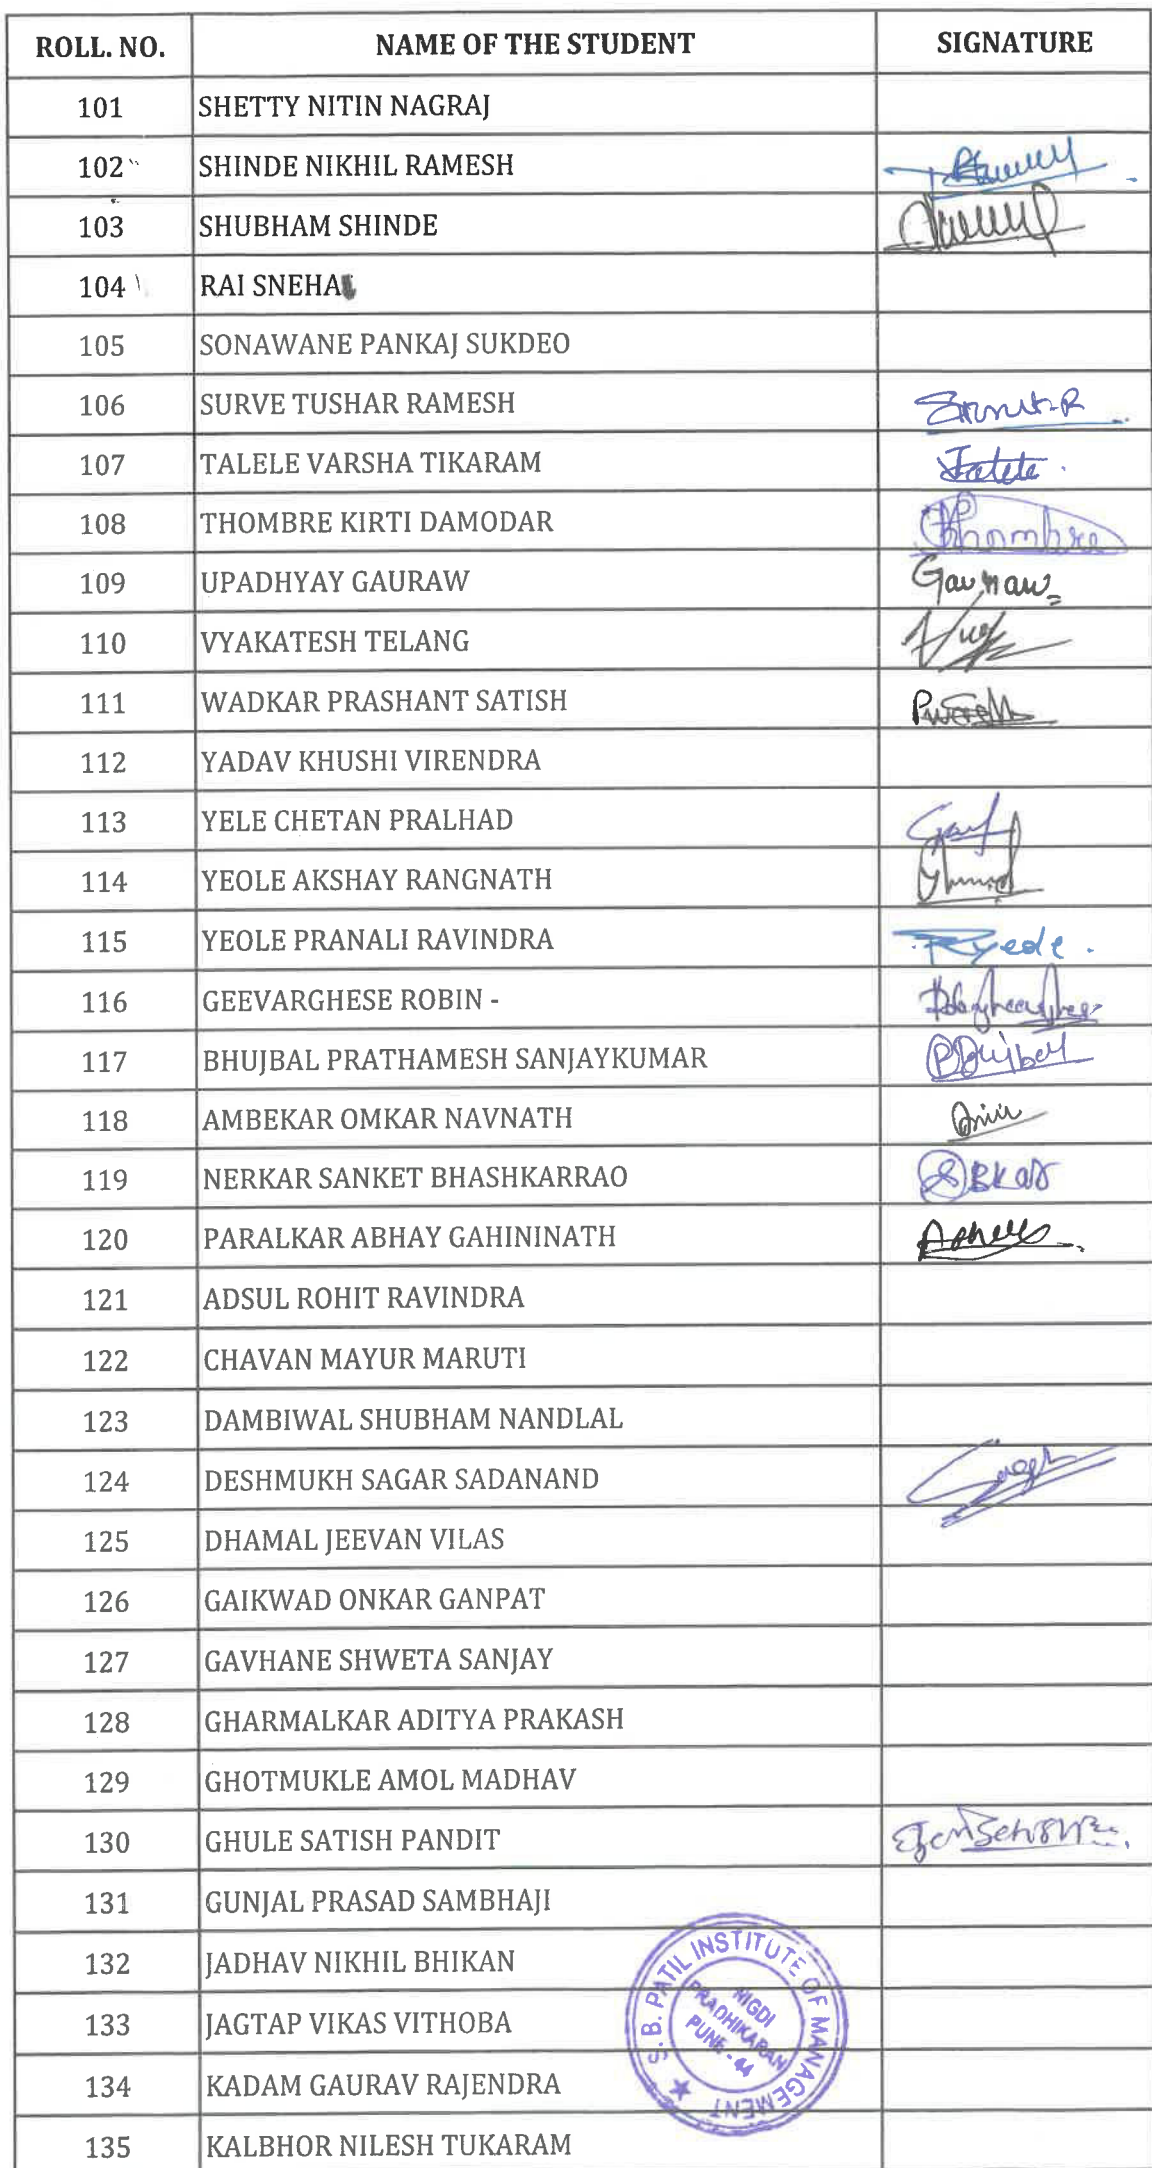 ROLL. NO. NAME OF THE STUDENT SIGNATURE
101 SHETTY NITIN NAGRAJ
102 SHINDE NIKHIL RAMESH
103 SHUBHAM SHINDE
104 RAI SNEHA
105 SONAWANE PANKAJ SUKDEO
106 SURVE TUSHAR RAMESH
107 TALELE VARSHA TIKARAM
108 THOMBRE KIRTI DAMODAR Thombre
109 UPADHYAY GAURAW Gauraw
110 VYAKATESH TELANG
111 WADKAR PRASHANT SATISH
112 YADAV KHUSHI VIRENDRA
113 YELE CHETAN PRALHAD
114 YEOLE AKSHAY RANGNATH
115 YEOLE PRANALI RAVINDRA
116 GEEVARGHESE ROBIN -
117 BHUJBAL PRATHAMESH SANJAYKUMAR
118 AMBEKAR OMKAR NAVNATH
119 NERKAR SANKET BHASHKARRAO
120 PARALKAR ABHAY GAHININATH
121 ADSUL ROHIT RAVINDRA
122 CHAVAN MAYUR MARUTI
123 DAMBIWAL SHUBHAM NANDLAL
124 DESHMUKH SAGAR SADANAND
125 DHAMAL JEEVAN VILAS
126 GAIKWAD ONKAR GANPAT
127 GAVHANE SHWETA SANJAY
128 GHARMALKAR ADITYA PRAKASH
129 GHOTMUKLE AMOL MADHAV
130 GHULE SATISH PANDIT
131 GUNJAL PRASAD SAMBHAJI
132 JADHAV NIKHIL BHIKAN
133 JAGTAP VIKAS VITHOBA
134 KADAM GAURAV RAJENDRA
135 KALBHOR NILESH TUKARAM
S. B. PATIL INSTITUTE OF MANAGEMENT
NIGDI
PRADHIKARAN
PUNE - 44